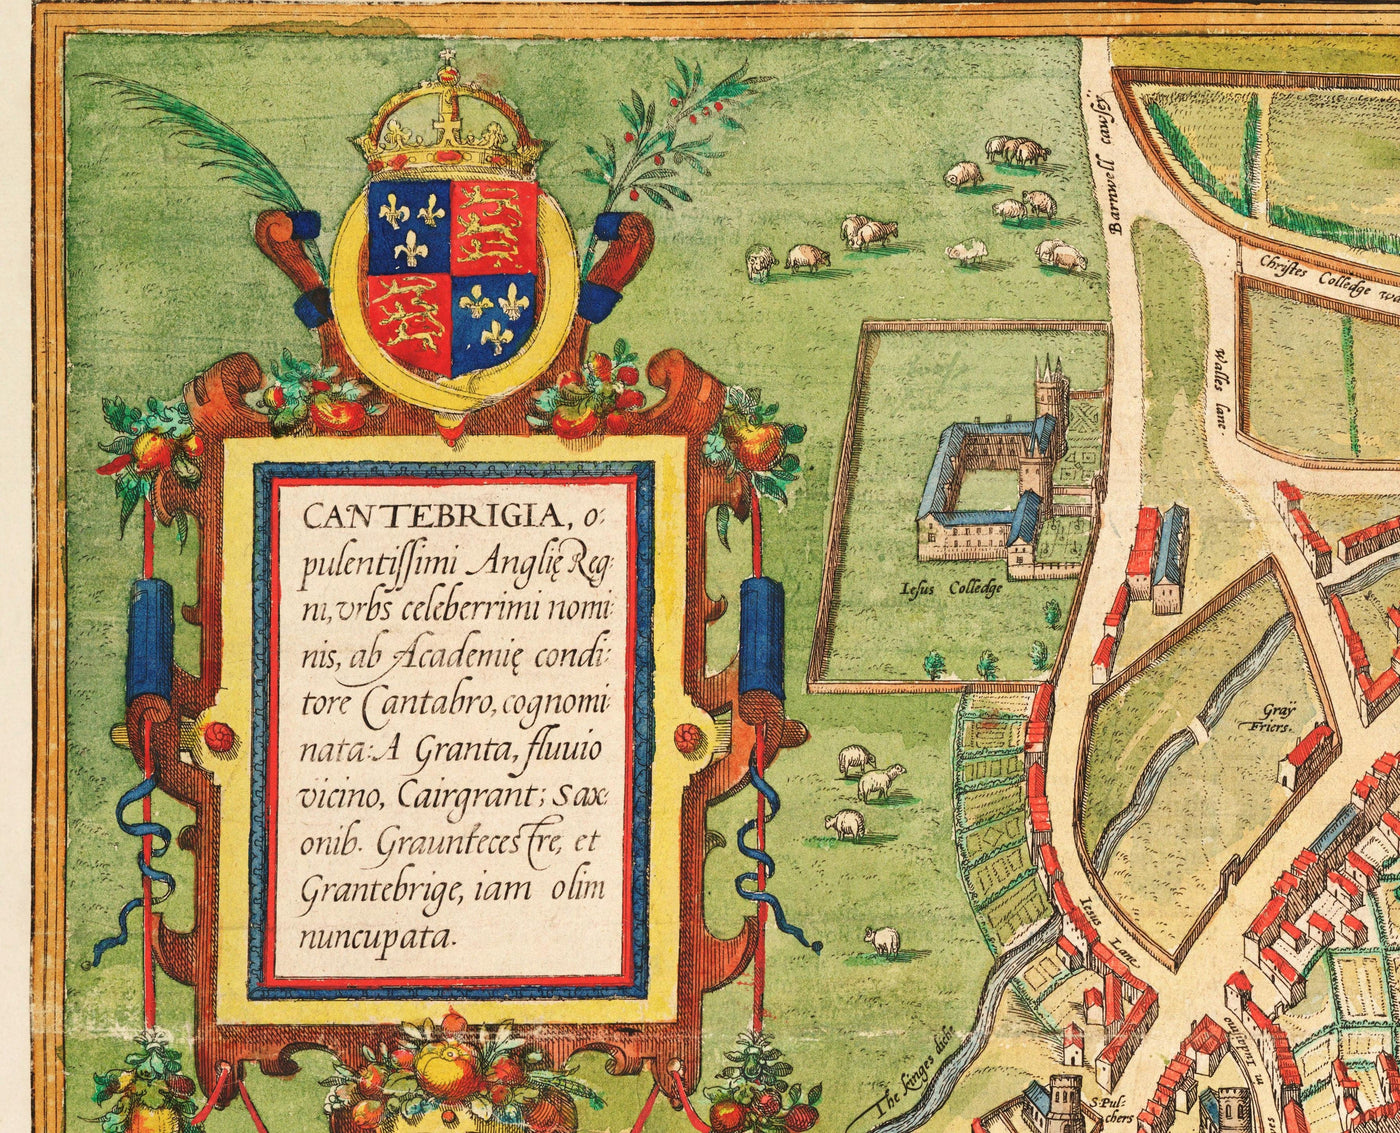 CANTEBRIGIA, o-
pulentissimi Anglię Reg-
ni, vrbs celeberrimi nomi-
nis, ab Academię condi-
tore Cantabro, cognomi-
nata: A Granta, fluuio
vicino, Cairgrant; Sax-
onib. Grauntecestre, et
Grantebrige, iam olim
nuncupata.
Barnwell cawsey
Chrystes Colledge
Walles lane.
Iesus Colledge
Gray
Friers.
Iesus Lane
The kinges dich
S. Pul-
chers